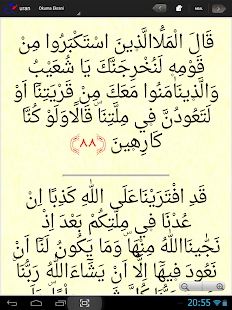 Okuma Ekrani
قَالَ الْمَلَأُالَّذِينَ اسْتَكْبَرُوا مِنْ
قَوْمِهِ لَنُخْرِجَنَّكَ يَا شُعَيْبُ
وَالَّذِينَاٰمَنُوا مَعَكَ مِنْ قَرْيَتِنَا اَوْ
لَتَعُودُنَّ فِي مِلَّتِنَا قَالَاَوَلَوْ كُنَّا
كَارِهِينَ ﴿٨٨﴾
قَدِ افْتَرَيْنَاعَلَى اللّٰهِ كَذِبًا اِنْ
عُدْنَا فِي مِلَّتِكُمْ بَعْدَ اِذْ
نَجّٰينَااللّٰهُ مِنْهَا وَمَا يَكُونُ لَنَا اَنْ
نَعُودَ فِيهَا اِلَّا اَنْ يَشَاءَاللّٰهُ رَبُّنَا
20:55